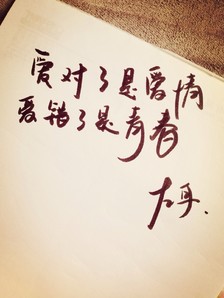 爱对了是爱情
爱错了是青春
大耳.